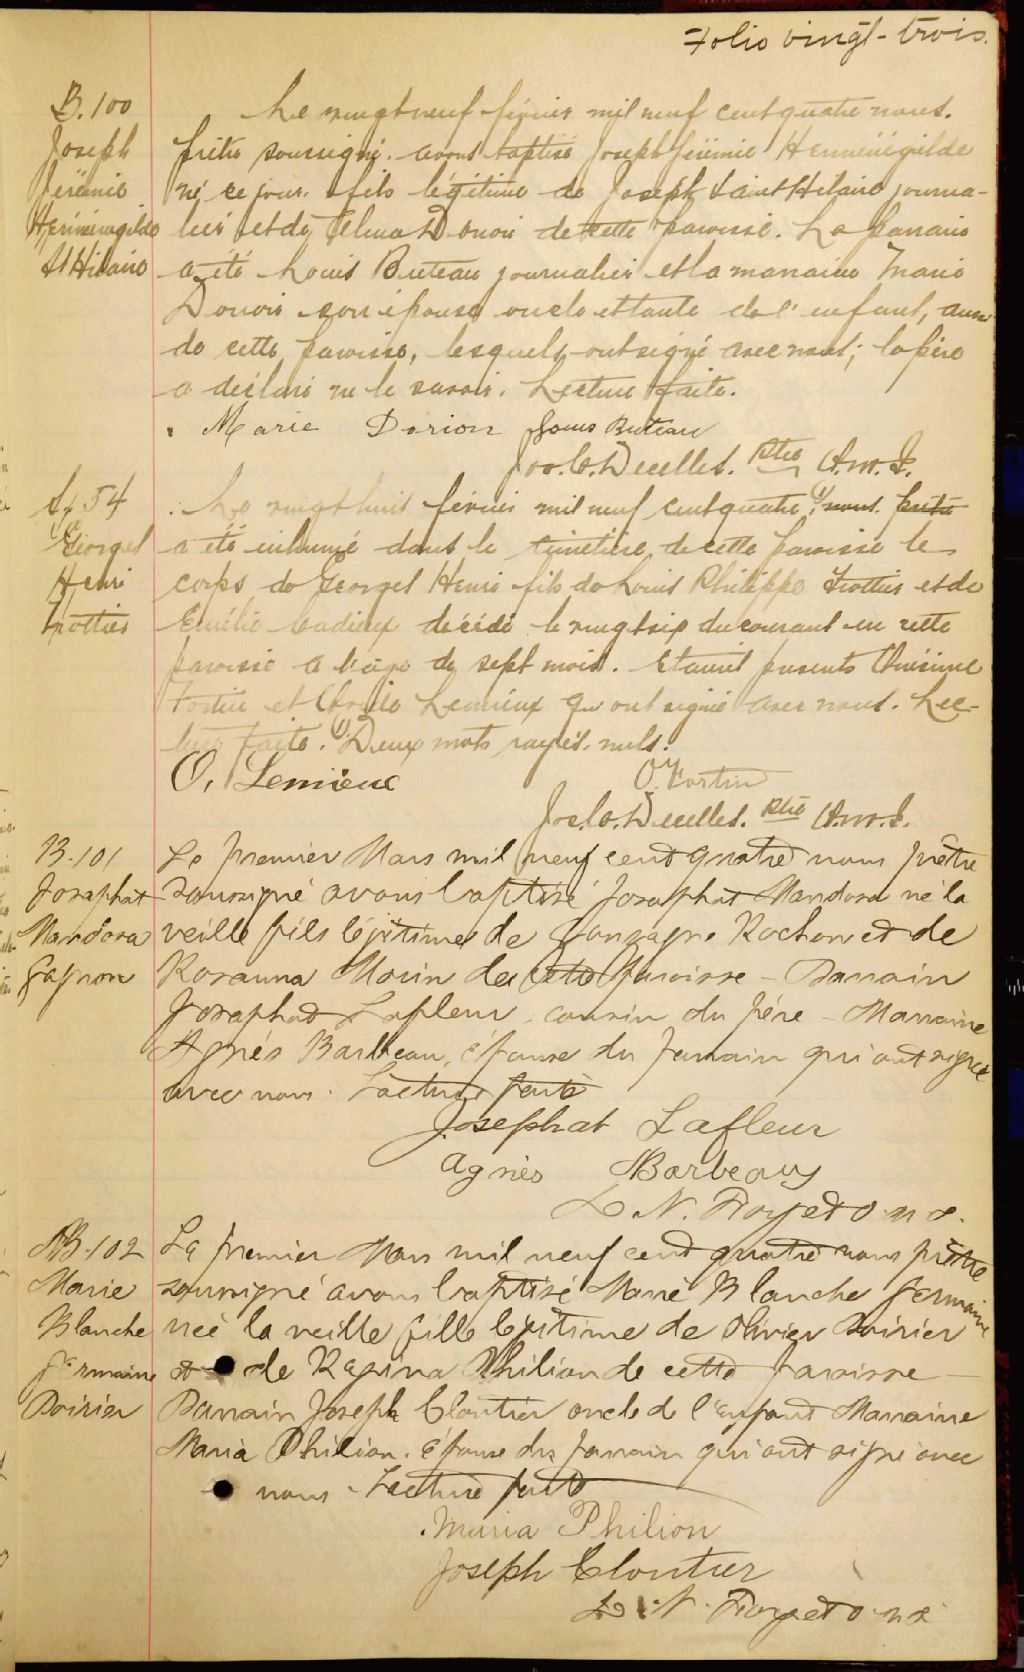 Folio vingt-trois.
B. 100
Joseph
Jérémie
Herménégilde
St Hilaire
Le vingt neuf février mil neuf cent quatre nous.
prêtre soussigné. avons baptisé Joseph Jérémie Herménégilde
né ce jour. fils légitime de Joseph Saint Hilaire journa-
lier et de Elma Donon de cette paroisse. Le parrain
a été Louis Buteau journalier et la marraine Marie
Donon son épouse oncle et tante de l'enfant, aussi
de cette paroisse, lesquels ont signé avec nous; le père
a déclaré ne le savoir. Lecture faite.
Marie Dorion Louis Buteau
Jos. C. Decelles. Ptre O.M.I.
S. 54
Georges
Henri
Trottier
Le vingt huit février mil neuf cent quatre (1) nous. prêtre
a été inhumé dans le cimetière de cette paroisse le
corps de Georges Henri fils de Louis Philippe Trottier et de
Emélie Cadieux décédé le vingt six du courant en cette
paroisse a l'âge de sept mois. Etaient présents Onésime
Fortin et Lemieux qui ont signé avec nous. Lec-
ture faite. (1) Deux mots rayés. nuls.
O. Lemieux O. Fortin
Jos. C. Decelles. Ptre O.M.I.
B. 101
Josaphat
Mandosa
Gagnon
Le premier Mars mil neuf cent quatre nous prêtre
soussigné avons baptisé Josaphat Mandosa né la
veille fils légitime de Gonzague Rochon et de
Rosanna Morin de cette paroisse - Parrain
Josaphat Lafleur, cousin du père - Marraine
Agnès Barbeau, épouse du parrain qui ont signé
avec nous. Lecture faite
Josephat Lafleur
Agnès Barbeau
L N. Forget o m i.
B. 102
Marie
Blanche
Germaine
Poirier
Le premier Mars mil neuf cent quatre nous prêtre
soussigné avons baptisé Marie Blanche Germaine
née la veille fille légitime de Olivier Poirier
et de Regina Philion de cette paroisse -
Parrain Joseph Cloutier oncle de l'enfant Marraine
Maria Philion. épouse du parrain qui ont signé avec
nous - Lecture faite
Maria Philion
Joseph Cloutier
L. N. Forget o m i